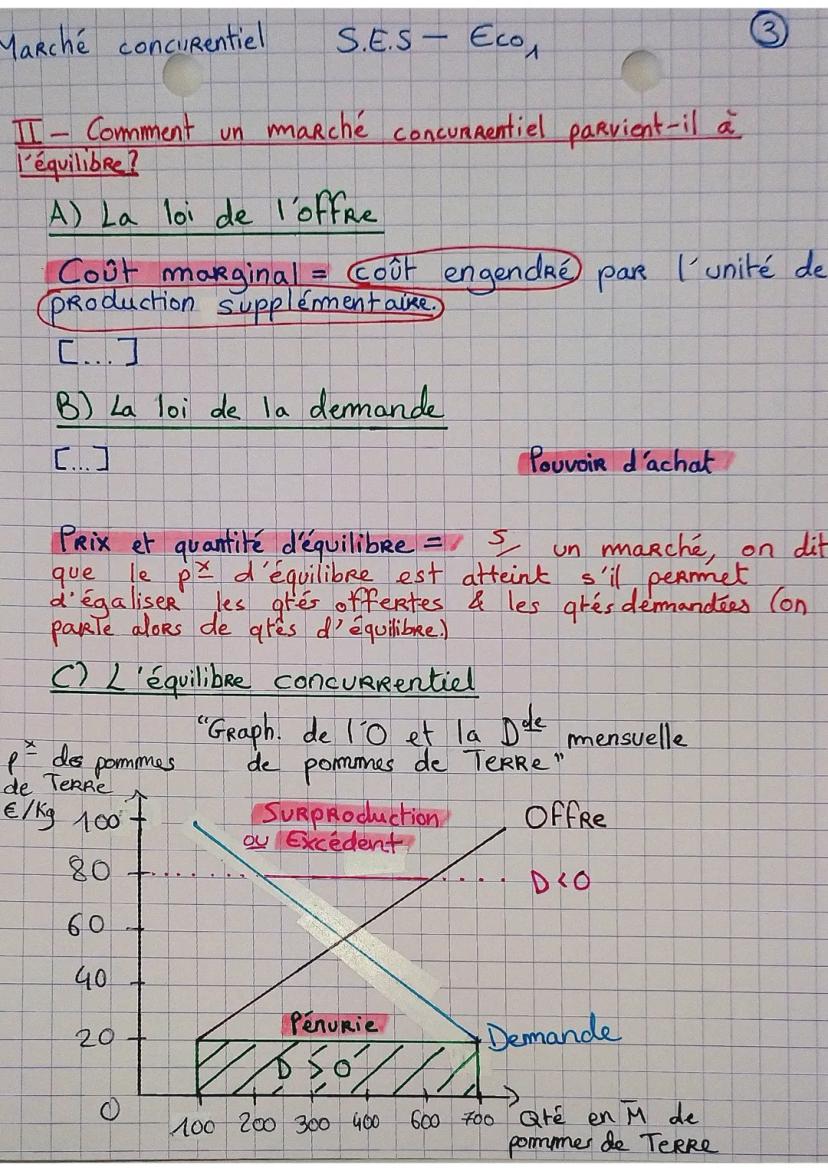 Marché concurentiel S.E.S - Eco1 ③
II - Comment un marché concurrentiel parvient-il à
l'équilibre?
A) La loi de l'offre
Coût marginal = coût engendré par l'unité de
production supplémentaire.
[...]
B) La loi de la demande
[...] Pouvoir d'achat
Prix et quantité d'équilibre = S/ un marché, on dit
que le px d'équilibre est atteint s'il permet
d'égaliser les qtés offertes & les qtés demandées (on
parle alors de qtés d'équilibre.)
C) L'équilibre concurrentiel
"Graph. de l'O et la Dde mensuelle
de pommes de Terre"
px des pommes
de Terre
€/Kg
100
Surproduction
ou Excédent
Offre
80
D<O
60
40
20
Pénurie
Demande
D > O
0
100 200 300 400 600 700
Qté en M de
pommes de Terre